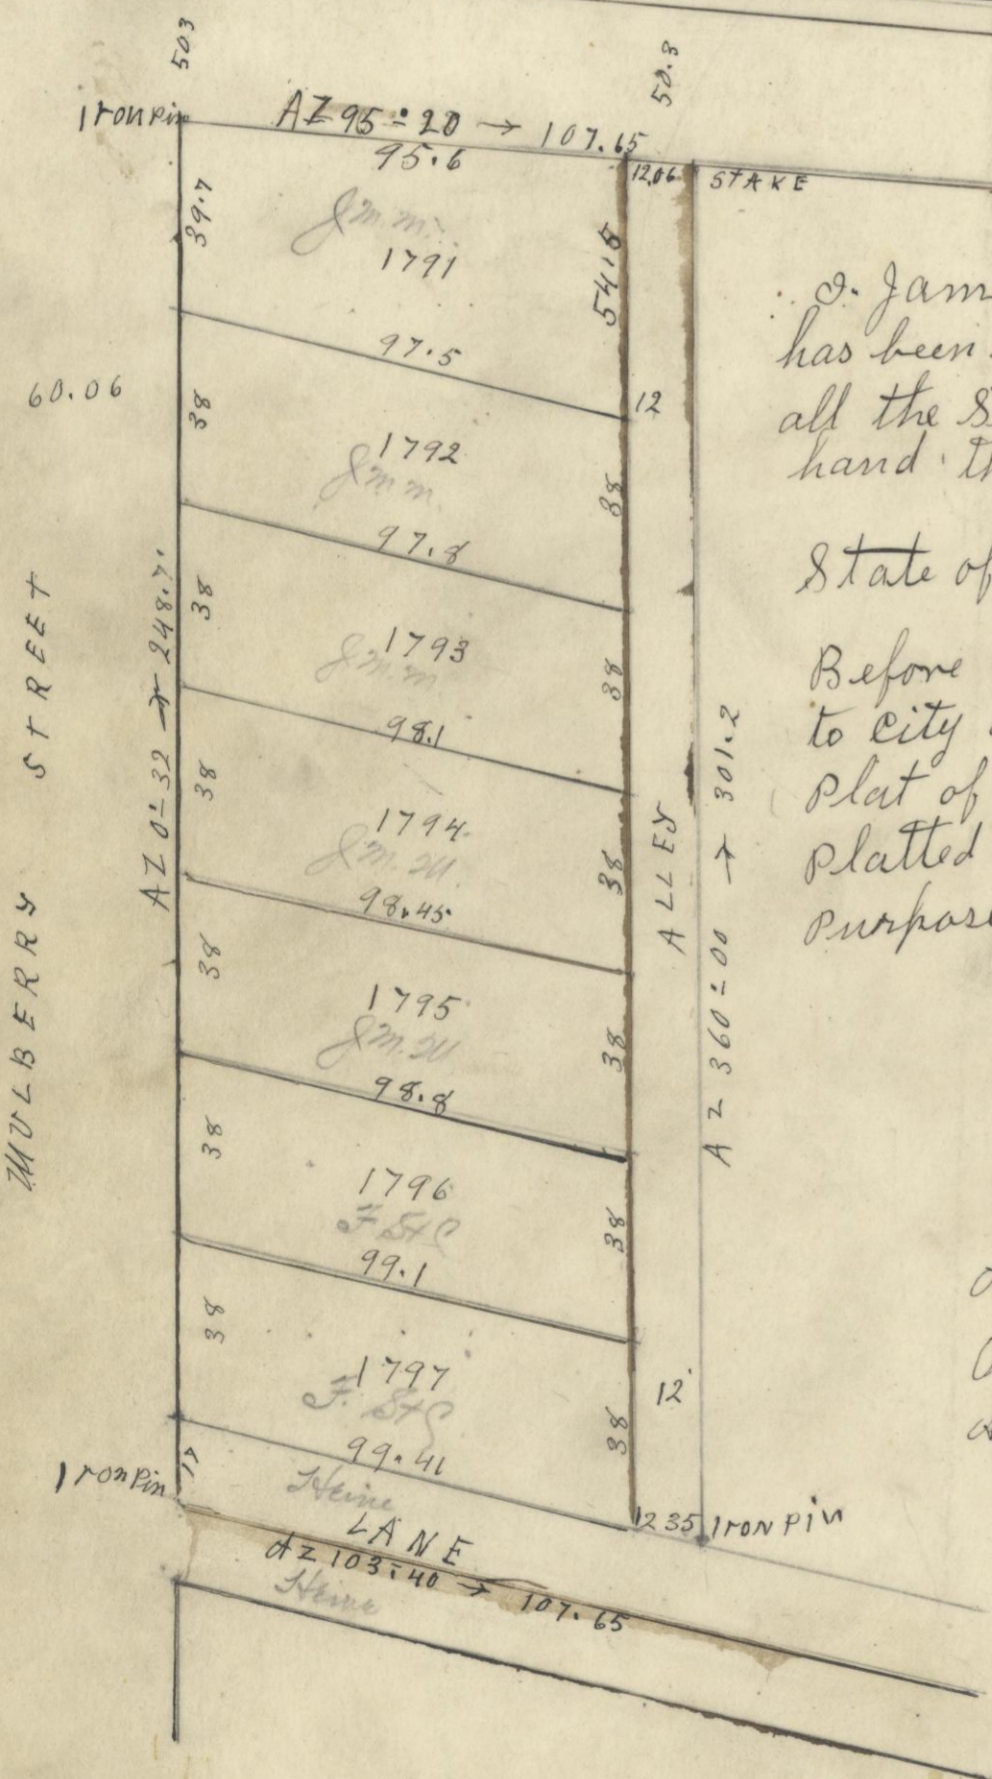 503
50.3
Iron Pin
AZ 95-20 → 107.65
95.6
12.06
STAKE
39.7
J.m.m.
1791
54.5
97.5
60.06
38
12
1792
J m m
38
97.8
38
1793
J.m.m
38
98.1
38
1794
J.M.M.
38
98.45
38
1795
J.M.M
38
98.8
38
1796
F St C
38
99.1
38
1797
F. St C
38
99.41
12
MULBERRY STREET
AZ 0-32 → 248.7
ALLEY
AZ 360-00 → 301.2
17
Iron Pin
Heine
LANE
12 35
Iron Pin
AZ 103-40 → 107.65
Heine
I. Jam
has been
all the S
hand th
State of
Before
to City
Plat of
Platted
Purpose